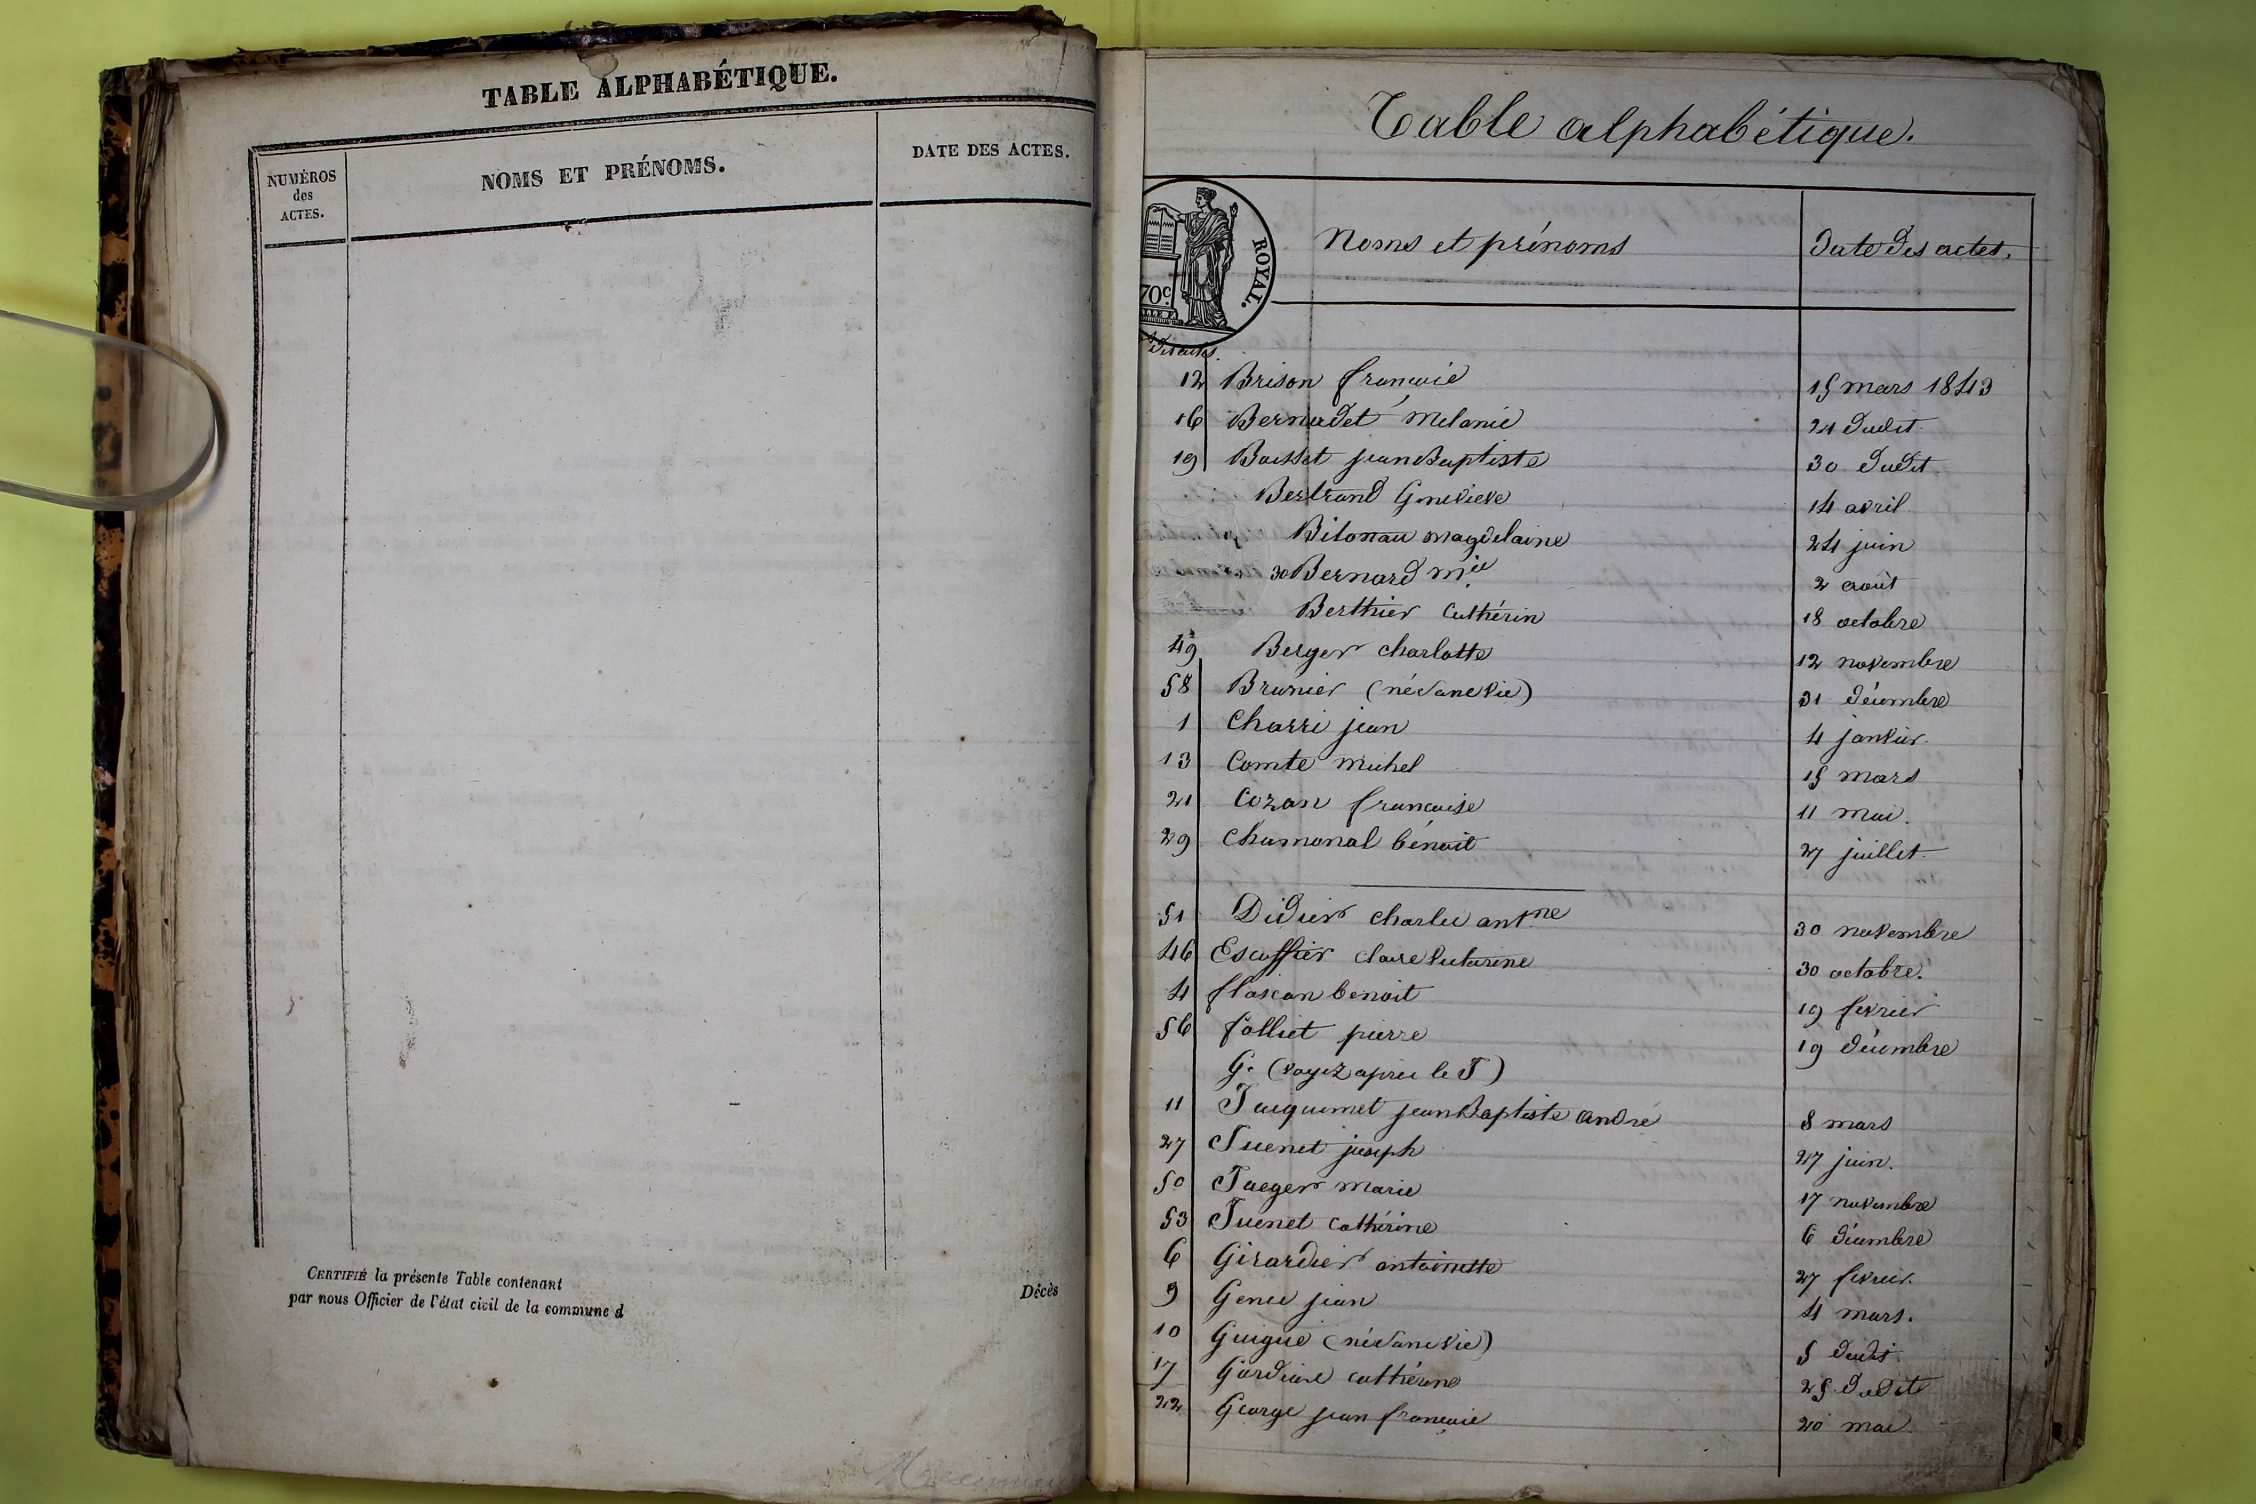 TABLE ALPHABÉTIQUE.
NUMÉROS
des
ACTES.
NOMS ET PRÉNOMS.
DATE DES ACTES.
CERTIFIÉ la présente Table contenant
Décès
par nous Officier de l'état civil de la commune d
Table alphabétique.
ROYAL.
70c.
Noms et prénoms
Date des actes.
des actes.
12 Brison françois 15 mars 1843
16 Bernadet Melanie 21 dudit
19 Boisset jean Baptiste 30 dudit
Bertrand Genevieve 14 avril
Bitonau magdelaine 24 juin
30 Bernard Mie 2 août
Berthier Cathérin 18 octobre
49 Berger charlotte 12 novembre
58 Brunier (né sans vie) 31 décembre
1 Charri jean 4 janvier
13 Comte Michel 15 mars
21 Cozon françoise 11 mai.
29 Chamonal bénoit 27 juillet
51 Didier charles antne 30 novembre
46 Escoffier claire victorine 30 octobre.
4 flascan benoit 19 fevrier
56 folliet pierre 19 décembre
G. (voyez aprés le J)
11 Jacquemet jean Baptiste andré 8 mars
27 Juenet joseph 27 juin.
50 Jaeger marie 17 novembre
53 Juenet cathérine 6 décembre
6 Girardier antoinette 27 fevrier.
9 Genee jean 4 mars.
10 Guigue (né sans vie) 5 dudit
17 Gardiere cathérine 25 dudit
22 George jean françois 20 mai